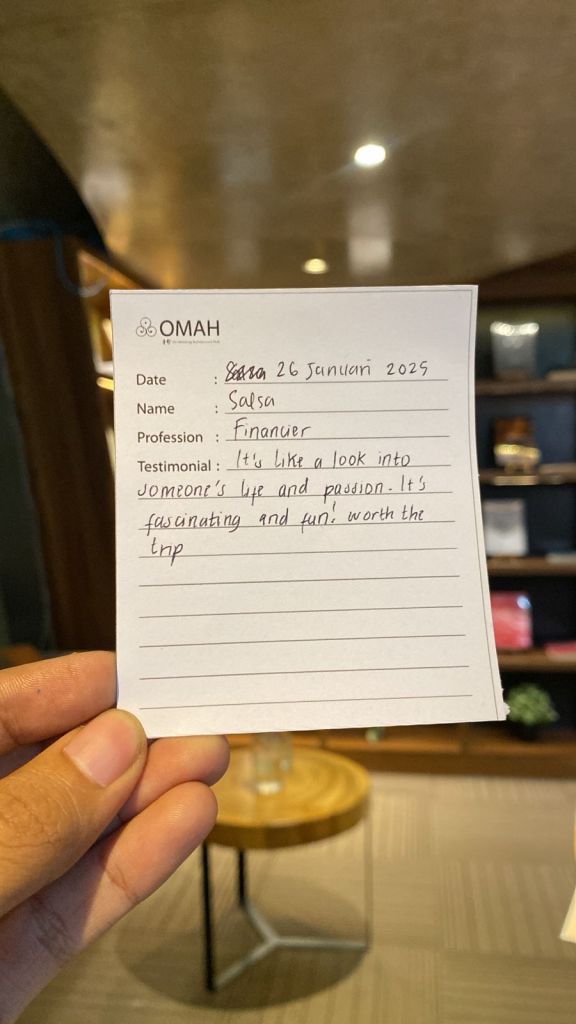 OMAH
Date : 26 Januari 2025
Name : Salsa
Profession : Financier
Testimonial : It's like a look into
someone's life and passion. It's
fascinating and fun! worth the
trip